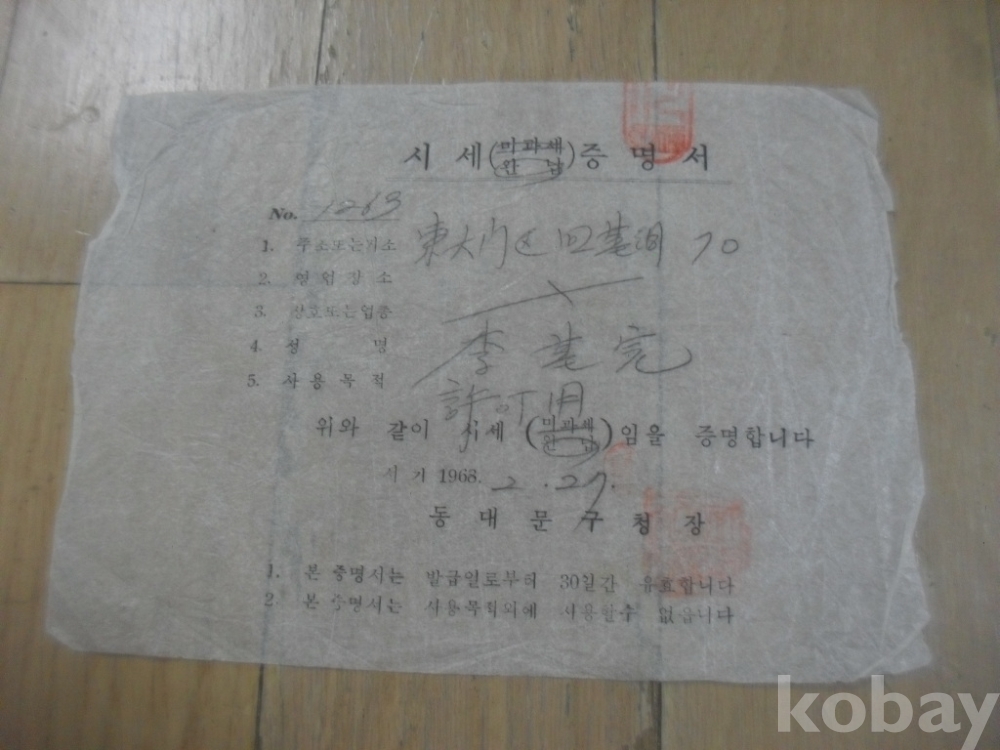 시 세 (미과세 완 납) 증 명 서
No. 1263
1. 주소또는거소 東大门区 回基洞 70
2. 영 업 장 소
3. 상호또는업종
4. 성 명 李基完
5. 사 용 목 적 許可用
위와 같이 시세 (미과세 완 납) 임을 증명합니다
서기 1968. 2 . 27.
동 대 문 구 청 장
1. 본 증명서는 발급일로부터 30일간 유효합니다
2. 본 증명서는 사용목적외에 사용할수 없읍니다
kobay